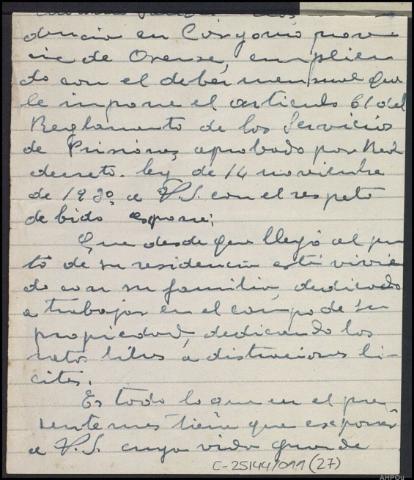 dencia en Corgomo provin
cia de Orense, cumplien
do con el deber mensual que
le impone el articulo 61 del
Reglamento de los Servicios
de Prisiones aprobado por Real
decreto. ley de 14 noviembre
de 1930 a V.S. con el respeto
debido espone:
Que desde que llegó al pun
to de su residencia está vivien
do con su familia, dedicado
a trabajar en el campo de su
propiedad, dedicando los
ratos libres a distraciones li
citas.
Es todo lo que en el pre
sente mes tiene que esponer
a V.S. cuya vida guarde
C-25144/011 (27)
AHPOU